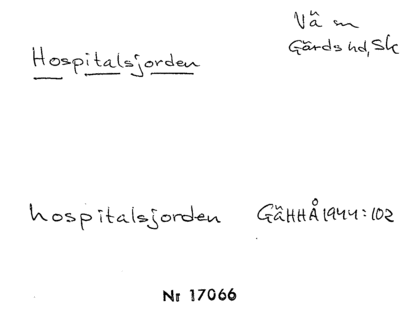 Vä sn
Gärds hd, Sk
Hospitalsjorden
hospitalsjorden GäHHÅ 1944:102
Nr 17066